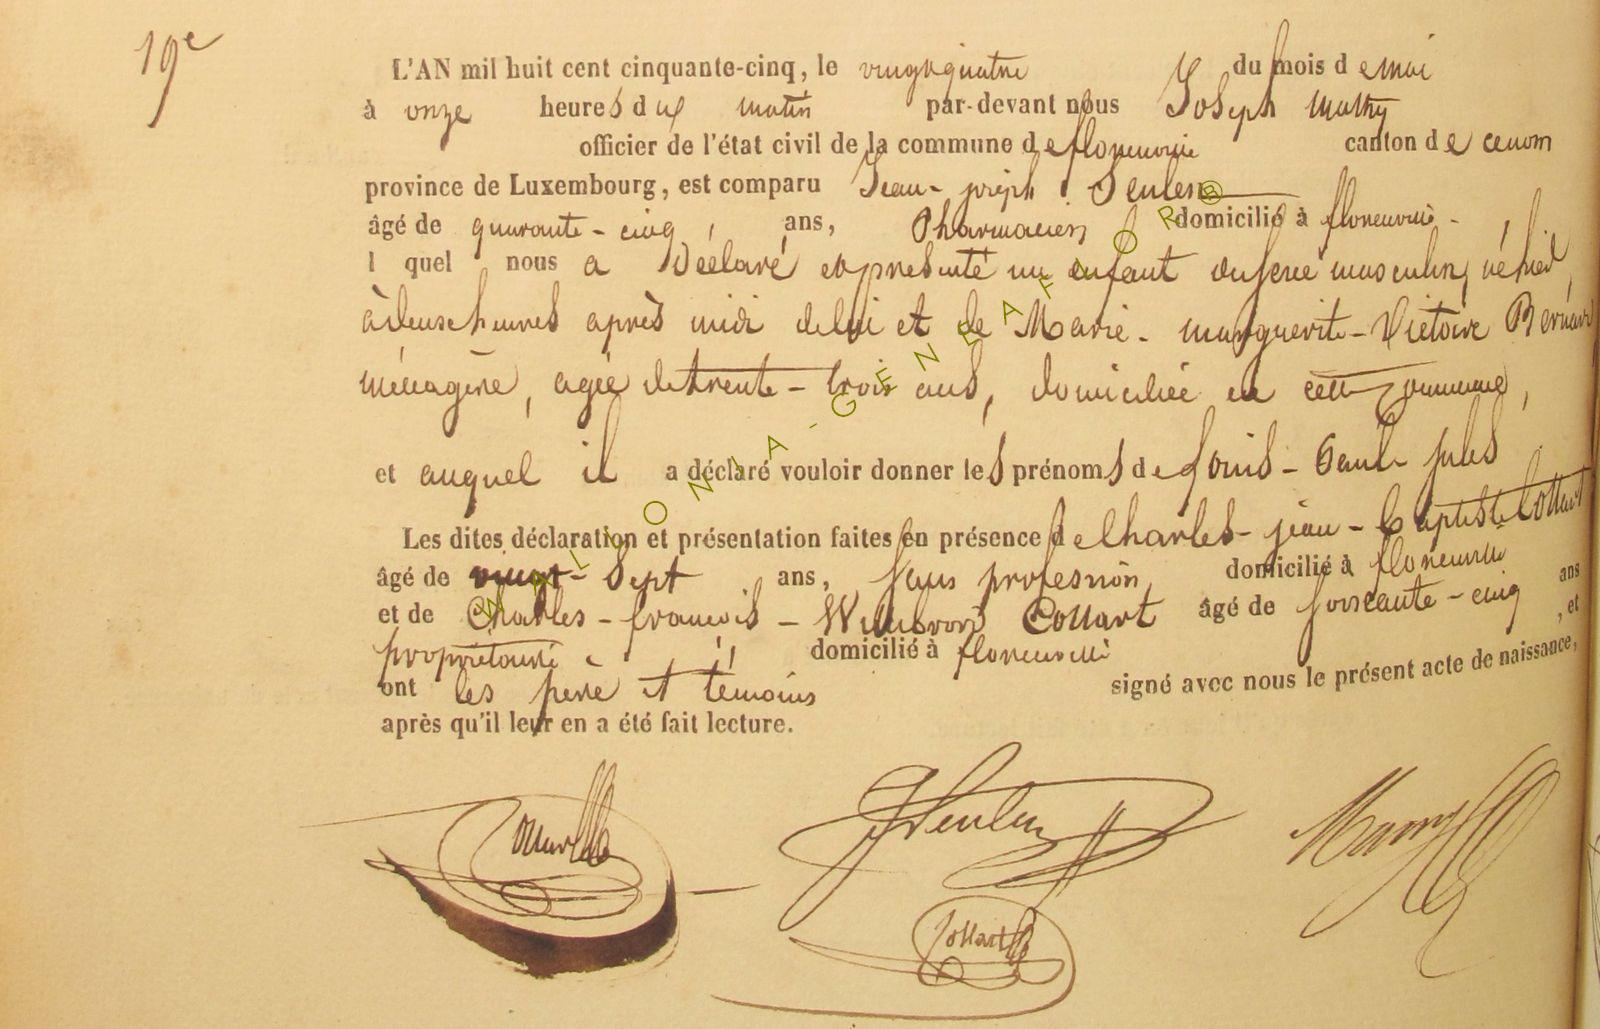 19e
L'AN mil huit cent cinquante-cinq, le vingt quatre du mois de mai
à onze heures du matin par-devant nous Joseph Mathy
officier de l'état civil de la commune de florenville canton de
province de Luxembourg, est comparu Jean-joseph
âgé de quarante-cinq, ans, Pharmacien domicilié à florenville-
lequel nous a Déclaré et présenté un enfant du sexe masculin, né hier,
à deux heures après midi de lui et de Marie-marguerite-Victoire Bernard
ménagère, agée de trente-trois ans, domiciliée en cette commune,
et auquel il a déclaré vouloir donner les prénoms de Louis-Paul-jules
Les dites déclaration et présentation faites en présence de Charles-jean-baptiste Collart
âgé de vingt-Sept ans, Sans profession domicilié à florenville
et de Charles-francois-Willbrord Collart âgé de soixante-cinq ans
propriétaire domicilié à florenville, et
ont les père et témoins signé avec nous le présent acte de naissance,
après qu'il leur en a été fait lecture.
Collart
Collart
WALLONIA-GENEAFLORB